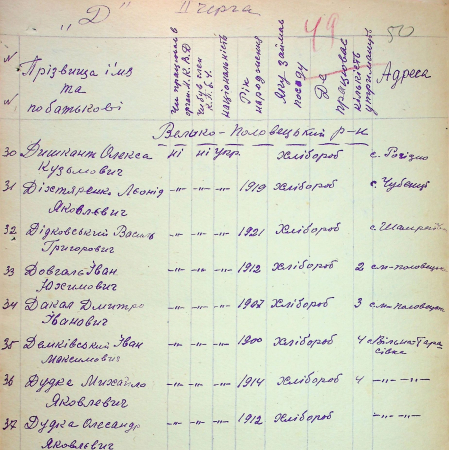 "Д" II черга
49 50
Прізвища ім'я та побатькові Чи працював в орган. Н.К.В.Д Чи був член К.П.б.У. національність Рік народження Яку займав посаду Де працював кількість утриманців Адреса
Велико-Половецький р-н
30 Дишкант Олекса Кузьмович ні ні укр. Хлібороб с. Рогізно
31 Діхтяренко Леонід Яковлевич -"- -"- -"- 1919 Хлібороб с. Чубенці
32 Дідковський Василь Григорович -"- -"- -"- 1921 Хлібороб
33 Довгаль Іван Юхимович -"- -"- -"- 1912 Хлібороб 2 см-половецьк
34 Дакал Дмитро Іванович -"- -"- -"- 1907 Хлібороб 3 См-половецьк
35 Демківський Іван Максимович -"- -"- -"- 1900 Хлібороб 4 с Вільна-Тарасівка
36 Дудка Михайло Яковлевич -"- -"- -"- 1914 Хлібороб 4 -"- -"-
37 Дудка Олесандр Яковлевич -"- -"- -"- 1912 Хлібороб -"- -"-